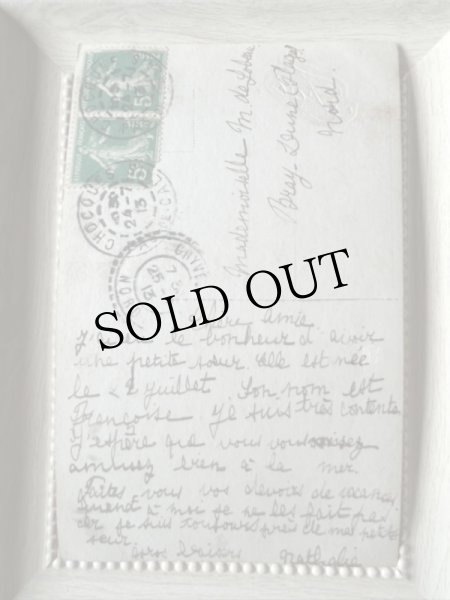 Mademoiselle M. de
Bray-Dunes Plage
Nord.
5c
5c
CHOCQUES
24-7
13
PAS-DE-CALAIS
SOLD OUT
Chère Amie
J'ai le bonheur d'avoir
une petite sœur. Elle est née
le 22 juillet. Son nom est
Françoise. Je suis très contente.
J'espère que vous vous
amusez bien à la mer.
Faites vous vos devoirs de vacances
quand à moi je ne les fait pas
car je suis toujours près de ma petite
sœur.
Gros baisers Nathalie